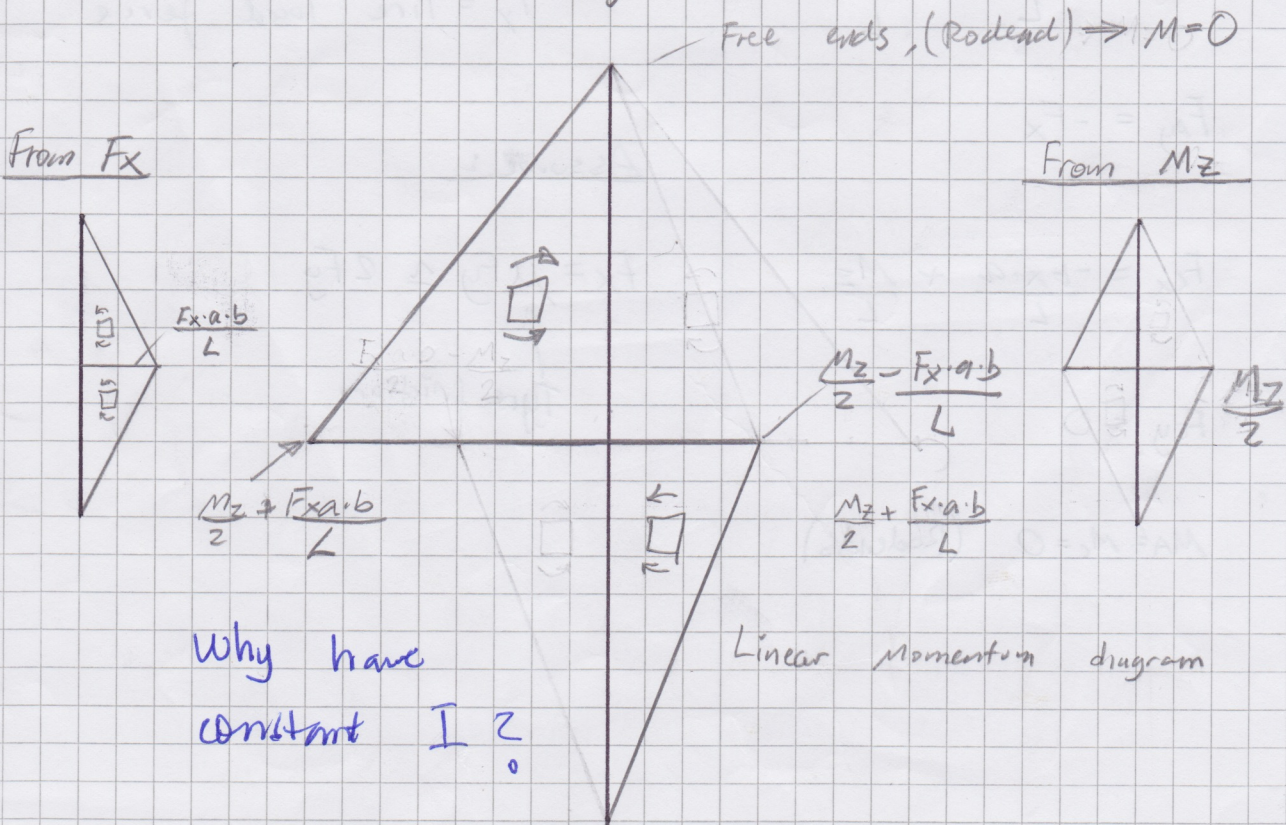 Free ends, (Rodend) ⇒ M=0
From Fx
From Mz
Fx·a·b
L
Mz/2 - Fx·a·b/L
Mz
2
Mz/2 + Fxa·b/L
Mz/2 + Fx·a·b/L
Why have
constant I?
Linear Momentum diagram